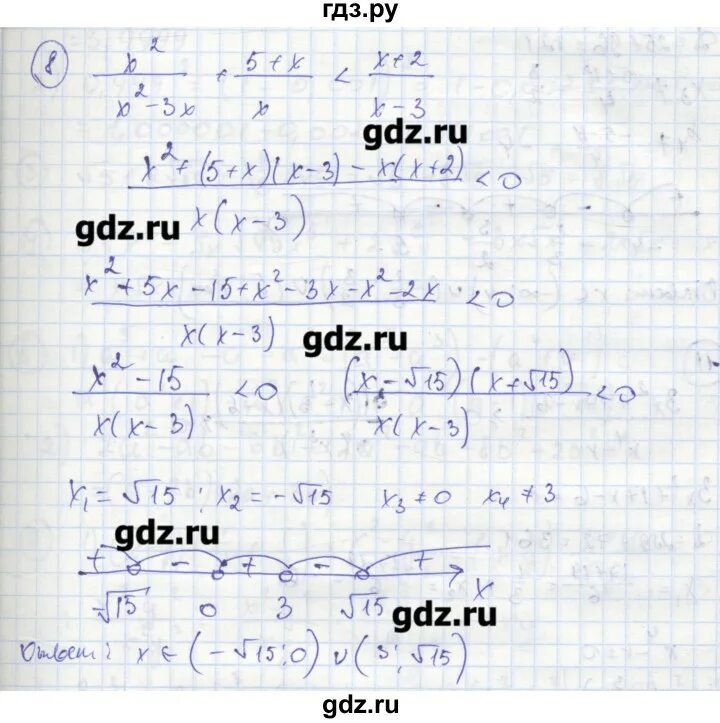 гдз.ру
8 x²/(x²-3x) + (5+x)/x < (x+2)/(x-3)
gdz.ru
(x²+(5+x)(x-3)-x(x+2))/(x(x-3)) < 0
gdz.ru
(x²+5x-15+x²-3x-x²-2x)/(x(x-3)) < 0
gdz.ru
(x²-15)/(x(x-3)) < 0 ((x-√15)(x+√15))/(x(x-3)) < 0
x₁=√15; x₂=-√15 x₃≠0 x₄≠3
gdz.ru
+ - + - + x
-√15 0 3 √15
gdz.ru
x ∈ (-√15;0) ∪ (3;√15)
gdz.ru